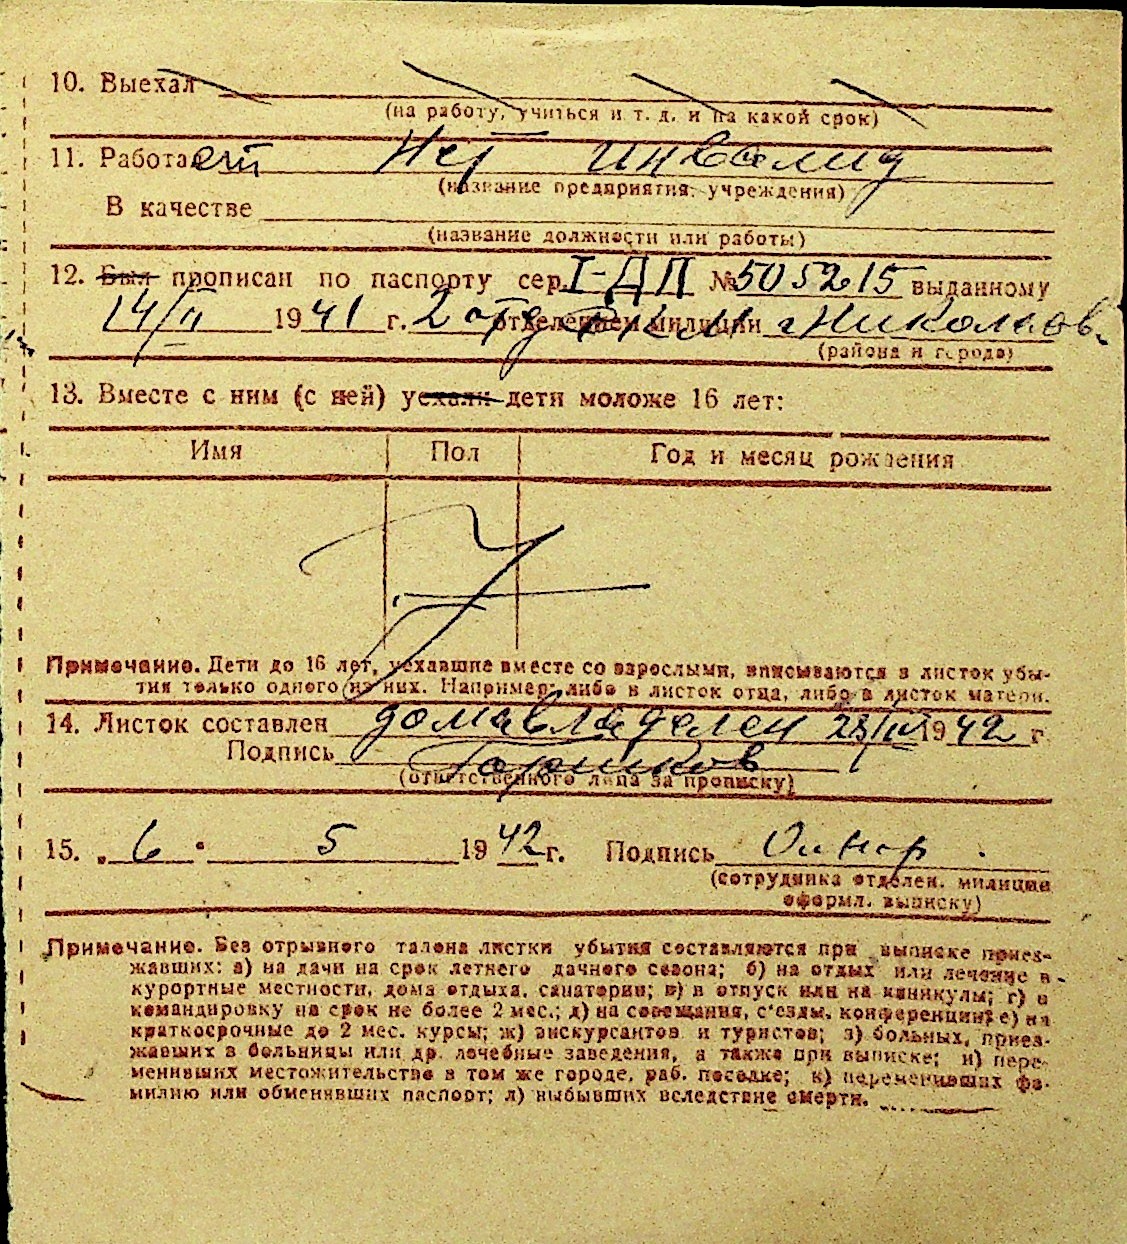 10. Выехал
(на работу, учиться и т. д. и на какой срок)
11. Работает Нет инвалид
(название предприятия, учреждения)
В качестве
(название должности или работы)
12. Был прописан по паспорту сер. I-ДП № 505215 выданному
14/II 1941 г. 2 отд отделением милиции г Николаев
(района и города)
13. Вместе с ним (с ней) уехали дети моложе 16 лет:
Имя Пол Год и месяц рождения
Примечание. Дети до 16 лет, уехавшие вместе со взрослыми, вписываются в листок убы-
тия только одного из них. Например: либо в листок отца, либо в листок матери.
14. Листок составлен домавладелец 1942 г
Подпись
(ответственного лица за прописку)
15. „6“ 5 1942 г. Подпись
(сотрудника отделен. милиции
оформл. выписку)
Примечание. Без отрывного талона листки убытия составляются при выписке приез-
жавших: а) на дачи на срок летнего дачного сезона; б) на отдых или лечение в
курортные местности, дома отдыха, санатории; в) в отпуск или на каникулы; г) в
командировку на срок не более 2 мес.; д) на совещания, с'езды, конференции; е) на
краткосрочные до 2 мес. курсы; ж) экскурсантов и туристов; з) больных, приез-
жавших в больницы или др. лечебные заведения, а также при выписке; и) пере-
менивших местожительство в том же городе, раб. поселке; к) переменивших фа-
милию или обменявших паспорт; л) выбывших вследствие смерти.